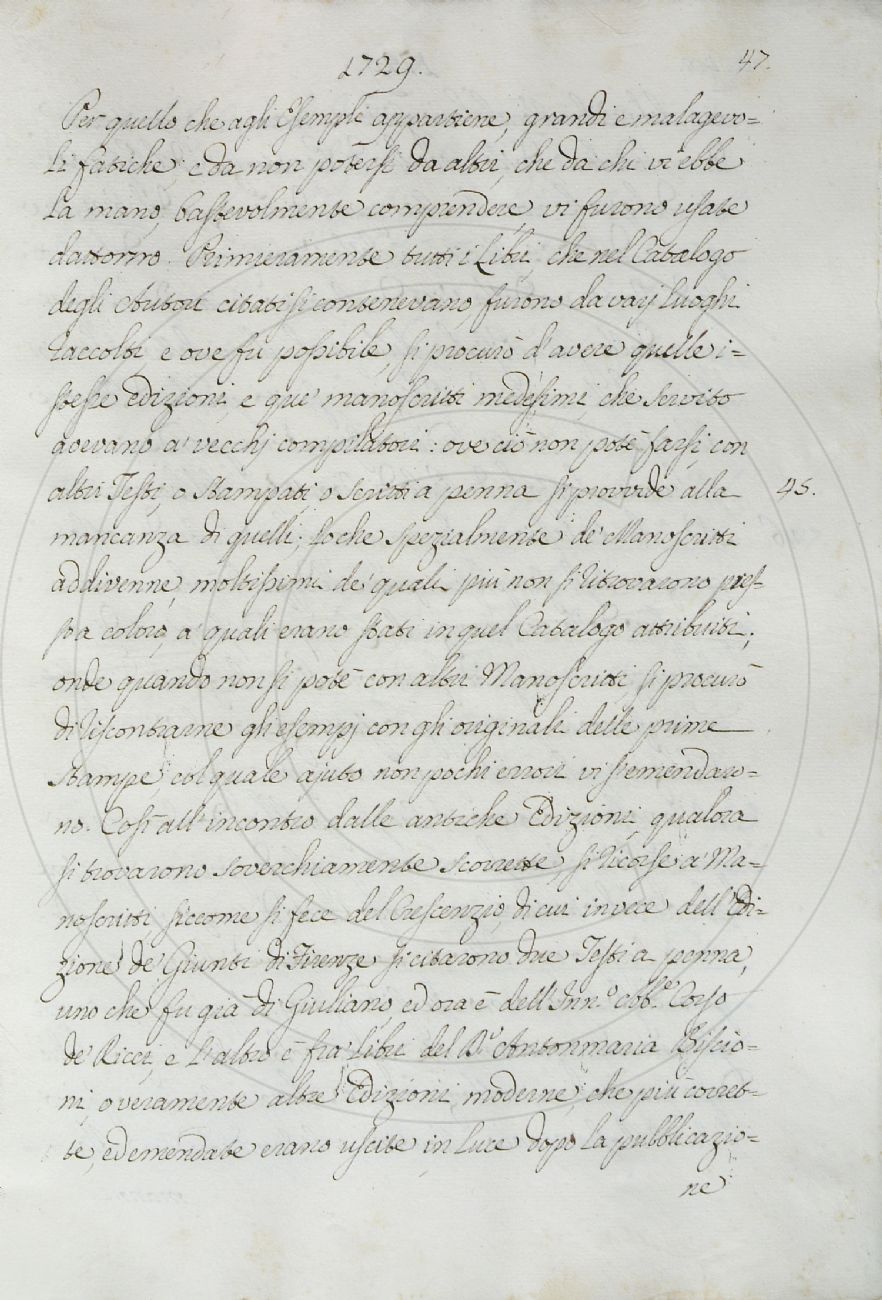 1729.
47.
Per quello che agli Esempli appartiene, grandi e malagevo=
li fatiche, e da non potersi da altri, che da chi vi ebbe
la mano, bastevolmente comprendere, vi furono usate
dattorno. Primieramente tutti i Libri, che nel Catalogo
degli Autori citati si contenevano, furono da varj luoghi
raccolti, e ove fu possibile, si procurò d'avere quelle i=
stesse edizioni, e que' manoscritti medesimi che servito
avevano a' vecchj compilatori: ove ciò non potè farsi, con
altri Testi, o stampati, o scritti a penna si provvide alla
45.
mancanza di quelli; loche spezialmente de' Manoscritti
addivenne, moltissimi de' quali più non si ritrovarono pres=
so a coloro, a' quali erano stati in quel Catalogo attribuiti;
onde quando non si potè con altri Manoscritti si procurò
di riscontrarne gli esempj con gli originali delle prime
stampe, col quale ajuto non pochi errori vi s'emendaro=
no. Così all'incontro dalle antiche Edizioni, qualora
si trovarono soverchiamente scorrette, si ricorse a' Ma=
noscritti siccome si fece del Crescenzio, di cui in vece dell'Edi=
zione de' Giunti di Firenze si citarono due Testi a penna,
uno che fu già di Giuliano, ed ora è dell'Inn.º Abb.e Corso
de' Ricci, e l'altro è fra' Libri del D.r Antonmaria Biscio=
ni, overamente altre Edizioni, moderne, che più corret=
te, ed emendate erano uscite in luce dopo la pubblicazio=
ne